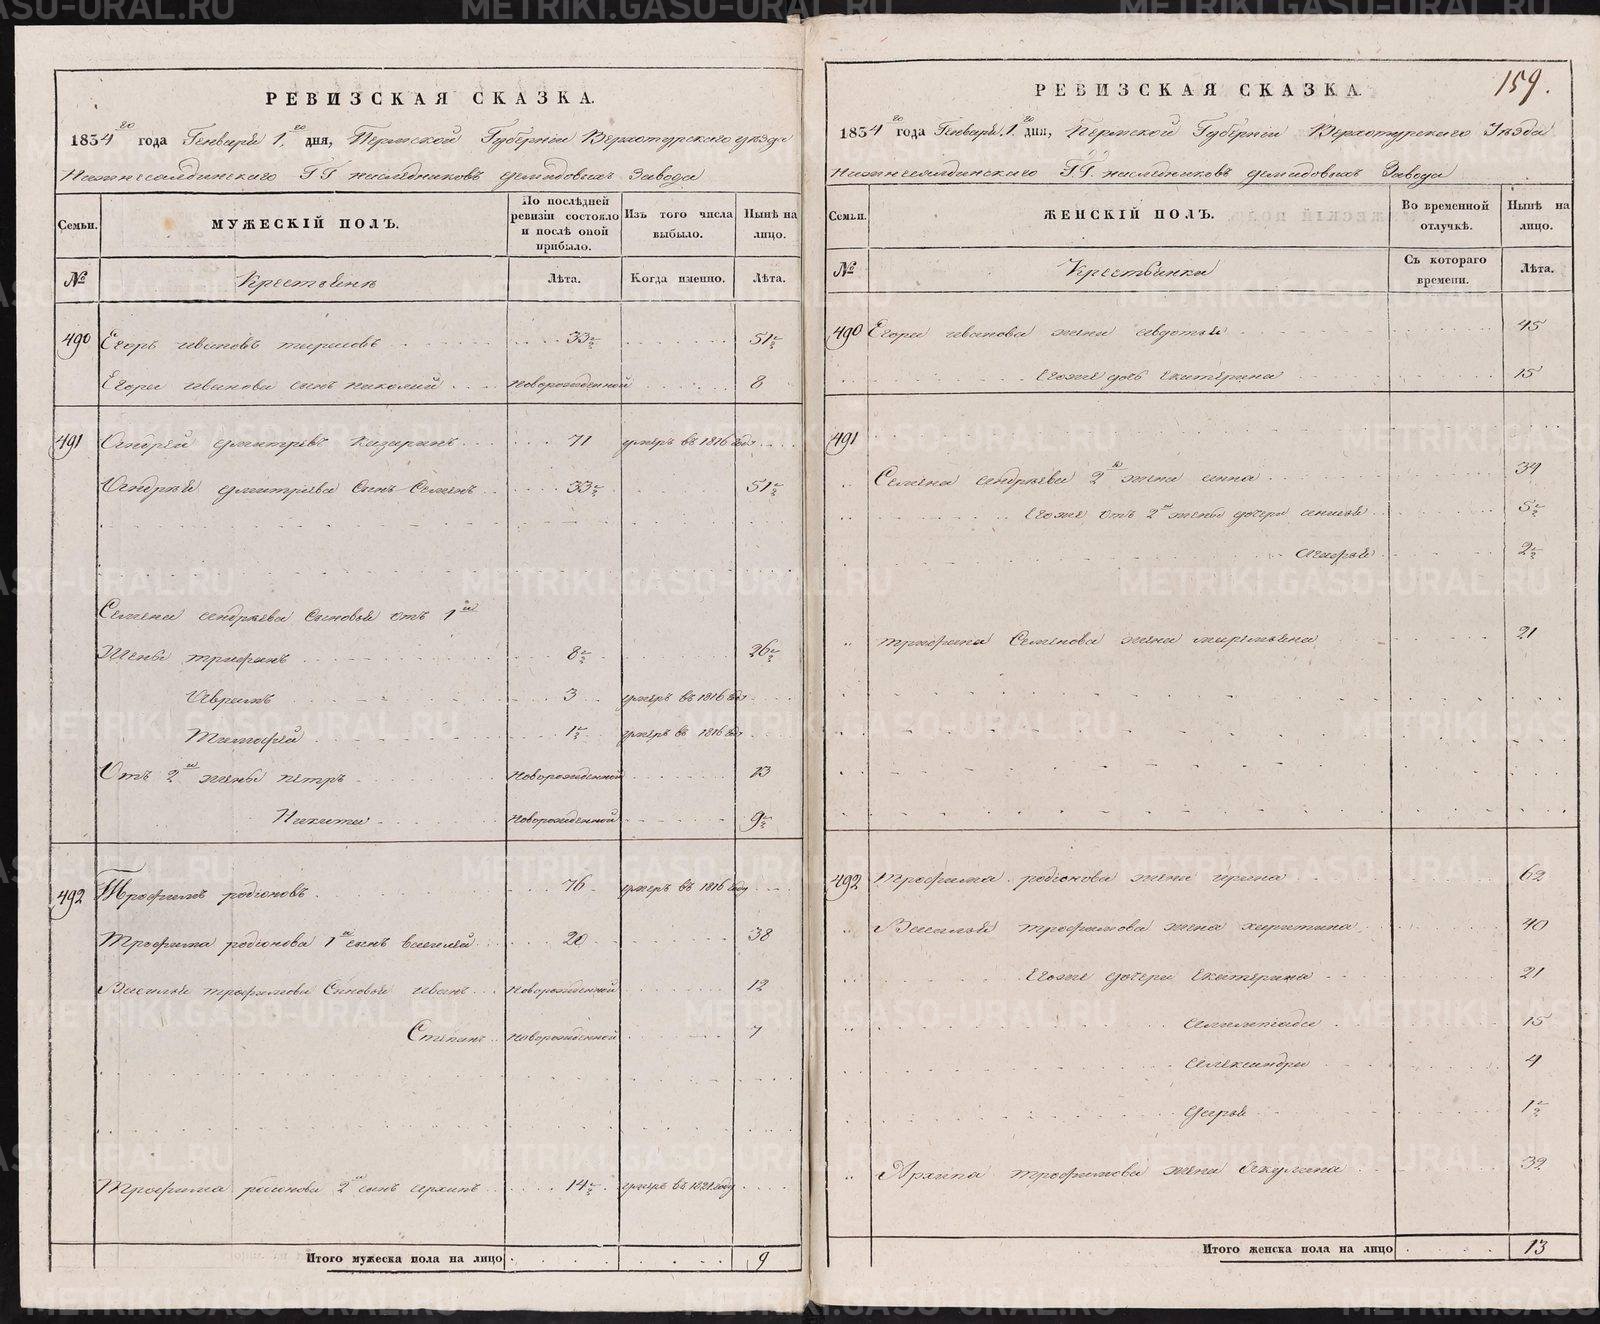 РЕВИЗСКАЯ СКАЗКА.
1834 го года Генваря 1 го дня, Пермской Губерніи Верхотурскаго уезда
Нижнесалдинскаго Г.Г. наследниковъ демидовыхъ Завода
Семьи.
МУЖЕСКІЙ ПОЛЪ.
По послѣдней ревизіи состояло и послѣ оной прибыло.
Изъ того числа выбыло.
Нынѣ на лицо.
№
Крестьянѣ
Лѣта.
Когда именно.
Лѣта.
490 Егоръ ивановъ 33½ 51½
Егора иванова сынъ николай новорожденной 8
491 Андрей дмитревъ казаринъ 71 умеръ въ 1816 году
Андрея дмитриева Сынъ Семенъ 33½ 51½
Семена андреева Сыновья отъ 1й
Жены трифанъ 8½ 26½
Абрамъ 3 умеръ въ 1816 году
Тимофей 1½ умеръ въ 1816 году
Отъ 2й жены петръ новорожденной 13
Никита новорожденной 9½
492 Трофимъ родіоновъ 76 умеръ въ 1816 году
Трофима родіонова 1й сынъ василей 20 38
Василья трофимова Сыновья иванъ новорожденной 12
Степанъ новорожденной 7
Трофима родіонова 2й сынъ архипъ 14½ умеръ въ 1821 году
Итого мужеска пола на лицо 9
159.
РЕВИЗСКАЯ СКАЗКА.
1834 го года Генваря 1 го дня, Пермской Губерніи Верхотурскаго Уезда
Нижнесалдинскаго Г.Г. наследниковъ демидовыхъ Завода
Семьи.
ЖЕНСКІЙ ПОЛЪ.
Во временной отлучкѣ.
Нынѣ на лицо.
№
Крестьянки
Съ котораго времени.
Лѣта.
490 Егора иванова жена авдотья 45
Егоже дочь екатерина 15
491
Семена андреева 2я жена анна 34
Егоже отъ 2й жены дочери анисья 5½
агафья 2½
трифана Семенова жена маремьяна 21
492 Трофима родіонова жена ирина 62
Василья трофимова жена харитина 40
Егоже дочери Екатерина 21
15
александра 4
дарья 1½
Архипа трофимова жена Акулина 32
Итого женска пола на лицо 13
METRIKI.GASO-URAL.RU